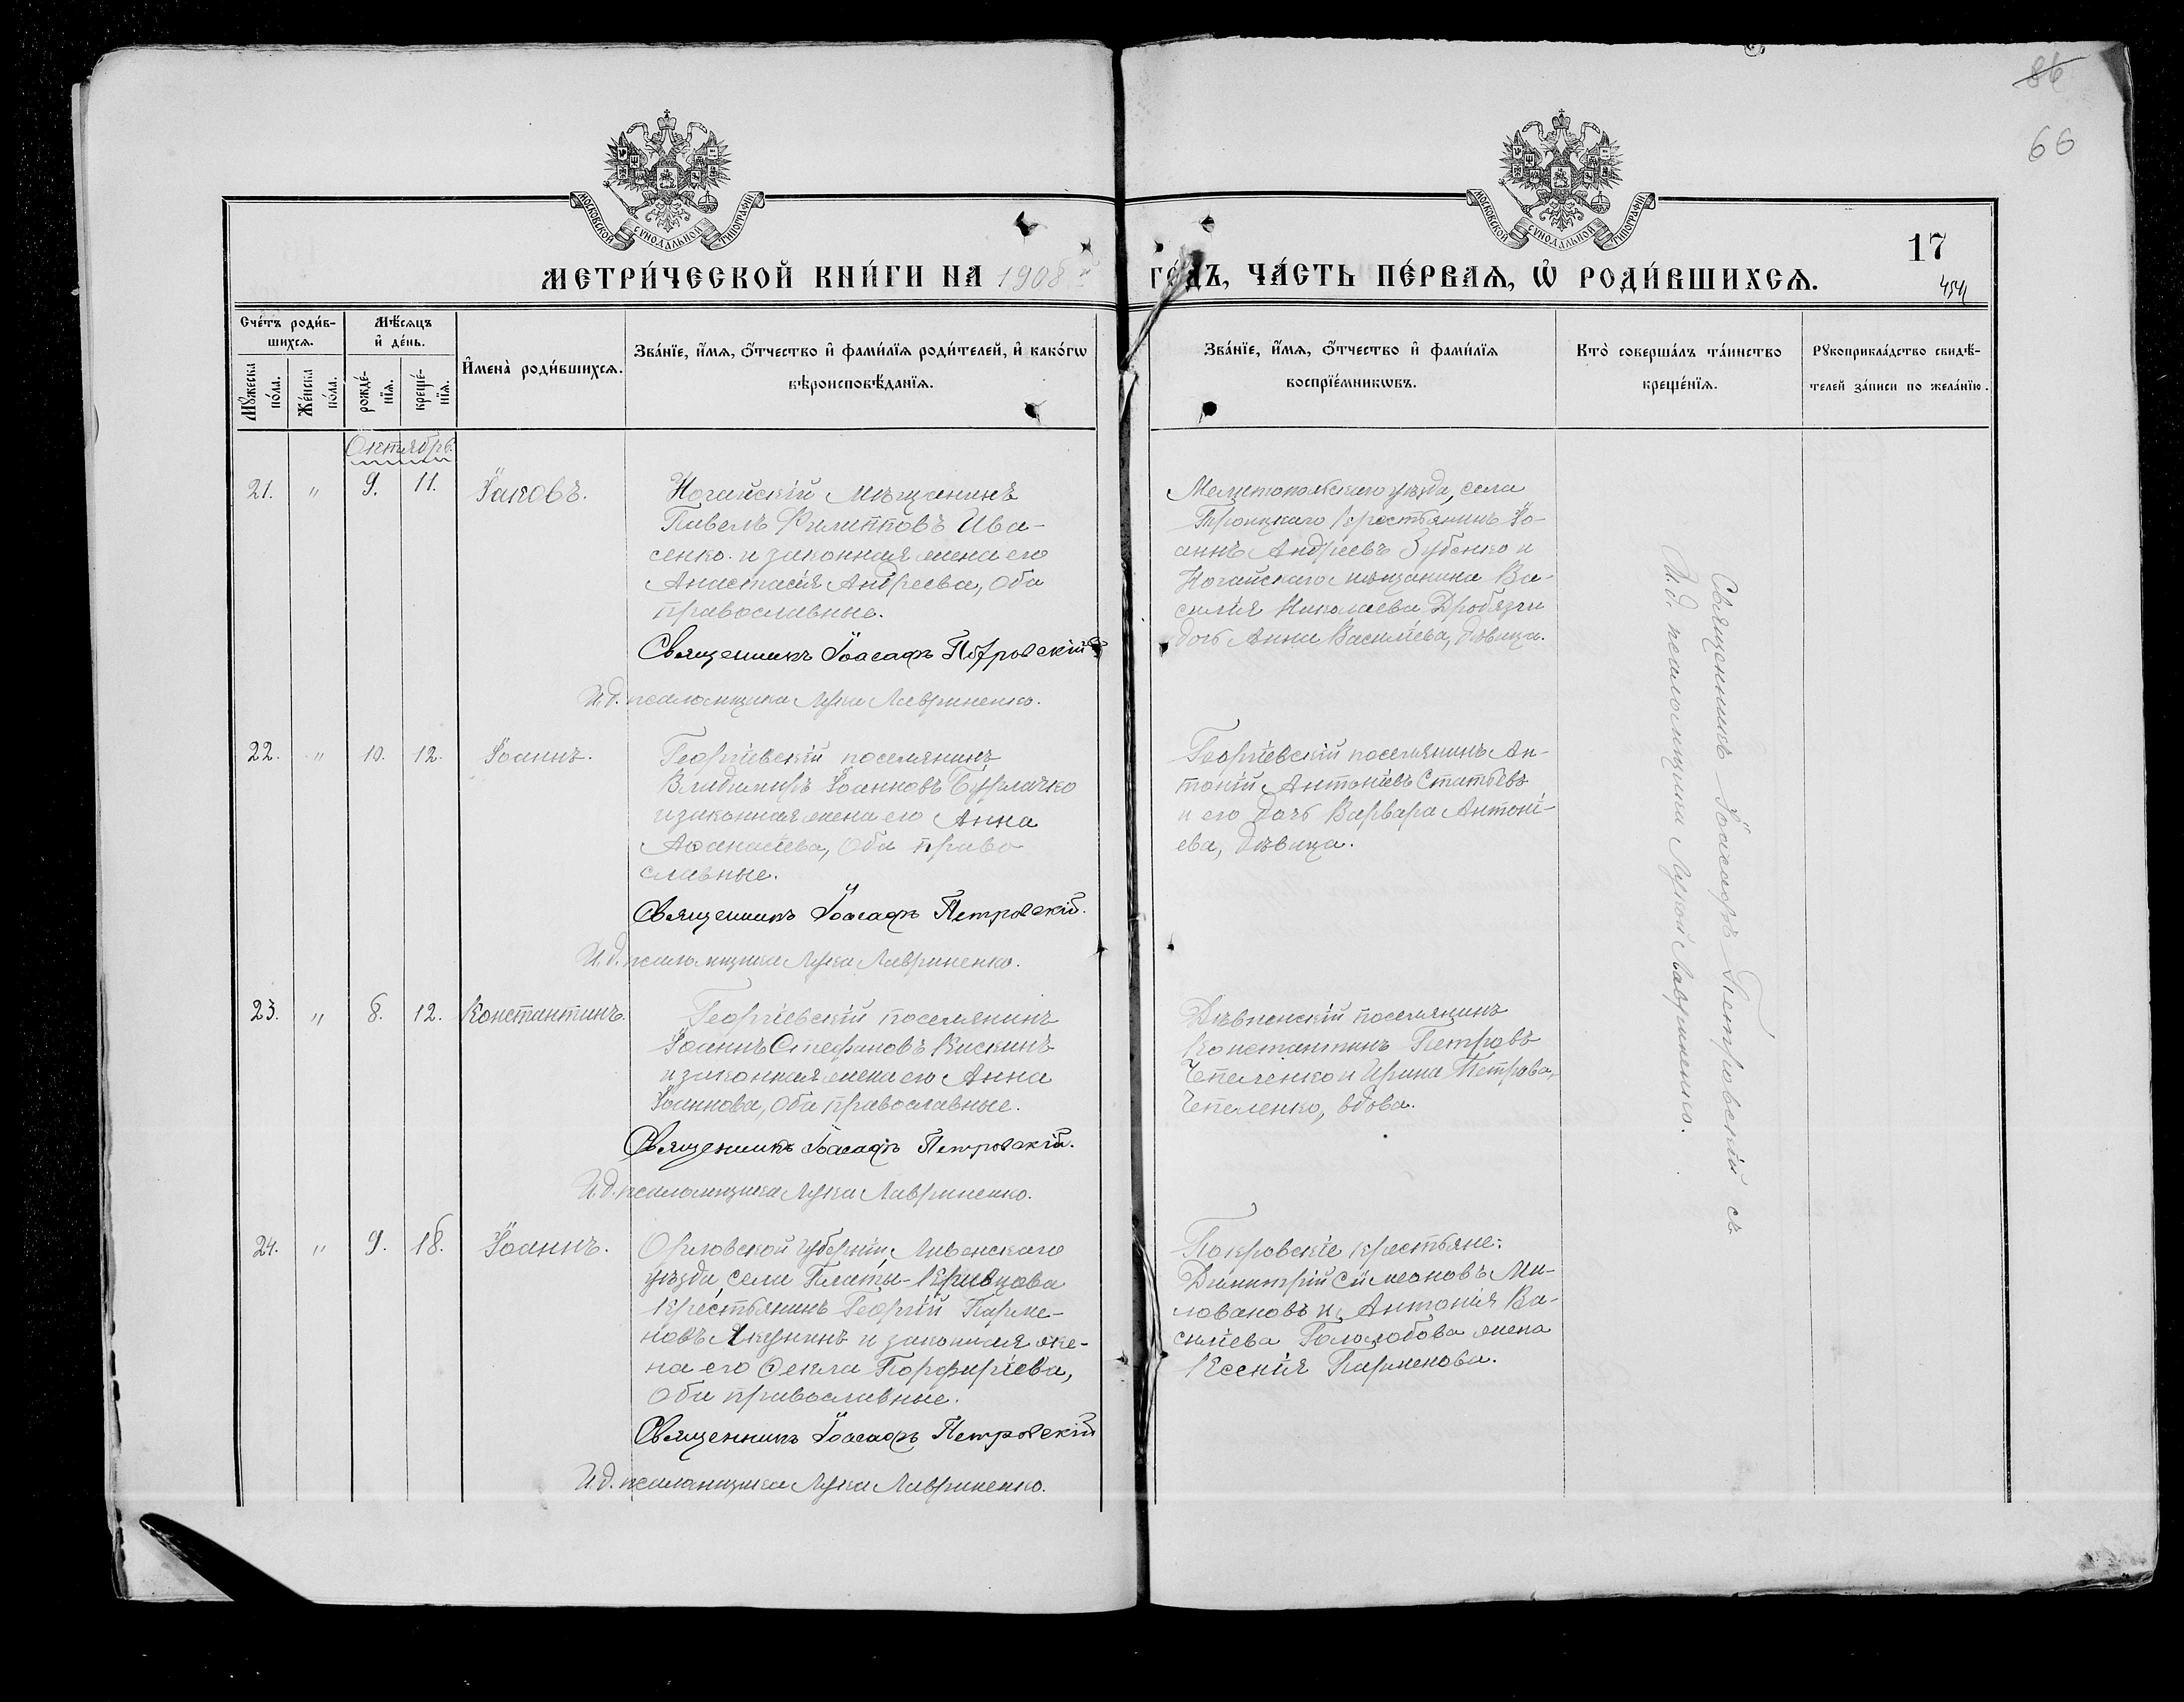 86
66
МОСКОВСКОЙ СѴНОДАЛЬНОЙ ТИПОГРАФІИ
МОСКОВСКОЙ СѴНОДАЛЬНОЙ ТИПОГРАФІИ
17
МЕТРИ́ЧЕСКОЙ КНИ́ГИ НА 1908й ГО́ДЪ, ЧА́СТЬ ПЕ́РВАѦ, Ѡ҆ РОДИ́ВШИХСѦ.
Сче́тъ роди́в-
шихсѧ.
Мꙋ́жеска по́ла.
Же́нска по́ла.
Мѣ́сѧцъ
и҆ де́нь.
рожде́-
нїѧ.
креще́-
нїѧ.
И҆мена̀ роди́вшихсѧ.
Зва́нїе, и҆́мѧ, ѻ҆́тчество и҆ фами́лїѧ роди́телей, и҆ како́гѡ
вѣроисповѣ́данїѧ.
Зва́нїе, и҆́мѧ, ѻ҆́тчество и҆ фами́лїѧ
воспрїе́мникѡвъ.
Кто̀ соверша́лъ та́инство
креще́нїѧ.
Рꙋкоприкла́дство свидѣ́-
телей за́писи по жела́нїю.
Октябрь.
21. " 9. 11. Іаковъ.
Ногайскій мѣщанинъ
Павелъ Филипповъ Ива-
сенко и законная жена его
Анастасія Андреева, оба
православные.
Священникъ Іоасафъ Петровскій
И.д. псаломщика Лука Лавриненко.
Мелитопольскаго уѣзда, села
Троицкаго крестьянинъ Іо-
аннъ Андреевъ Зубенко и
Ногайскаго мѣщанина Ва-
силія Николаева Дробязги
дочь Анна Василіева, дѣвица.
22. " 10. 12. Іоаннъ.
Георгіевскій поселянинъ
Владиміръ Іоанновъ
и законная жена его Анна
Аѳанасіева, оба право-
славные.
Священникъ Іоасафъ Петровскій.
И.д. псаломщика Лука Лавриненко.
Георгіевскій поселянинъ Ан-
тоній Антоніевъ Статьевъ
и его дочь Варвара Антоні-
ева, дѣвица.
23. " 8. 12. Константинъ.
Георгіевскій поселянинъ
Іоаннъ Стефановъ Кискинъ
и законная жена его Анна
Іоаннова, оба православные.
Священникъ Іоасафъ Петровскій.
И.д. псаломщика Лука Лавриненко.
поселянинъ
Константинъ Петровъ
Чепеленко и Ирина Петрова
Чепеленко, вдова.
24. " 9. 18. Іоаннъ.
Орловской губерніи, Ливенскаго
уѣзда, села
крестьянинъ Георгій Парме-
новъ Якунинъ и законная же-
на его Ѳекла Порфиріева,
оба православные.
Священникъ Іоасафъ Петровскій
И.д. псаломщика Лука Лавриненко.
Покровскіе крестьяне:
Димитрій Сімеоновъ Ми-
ловановъ и Антонія Ва-
силіева Голозубова жена
Ксенія Парменова.
Священникъ Іоасафъ Петровскій съ
И.д. псаломщика Лукой Лавриненко.